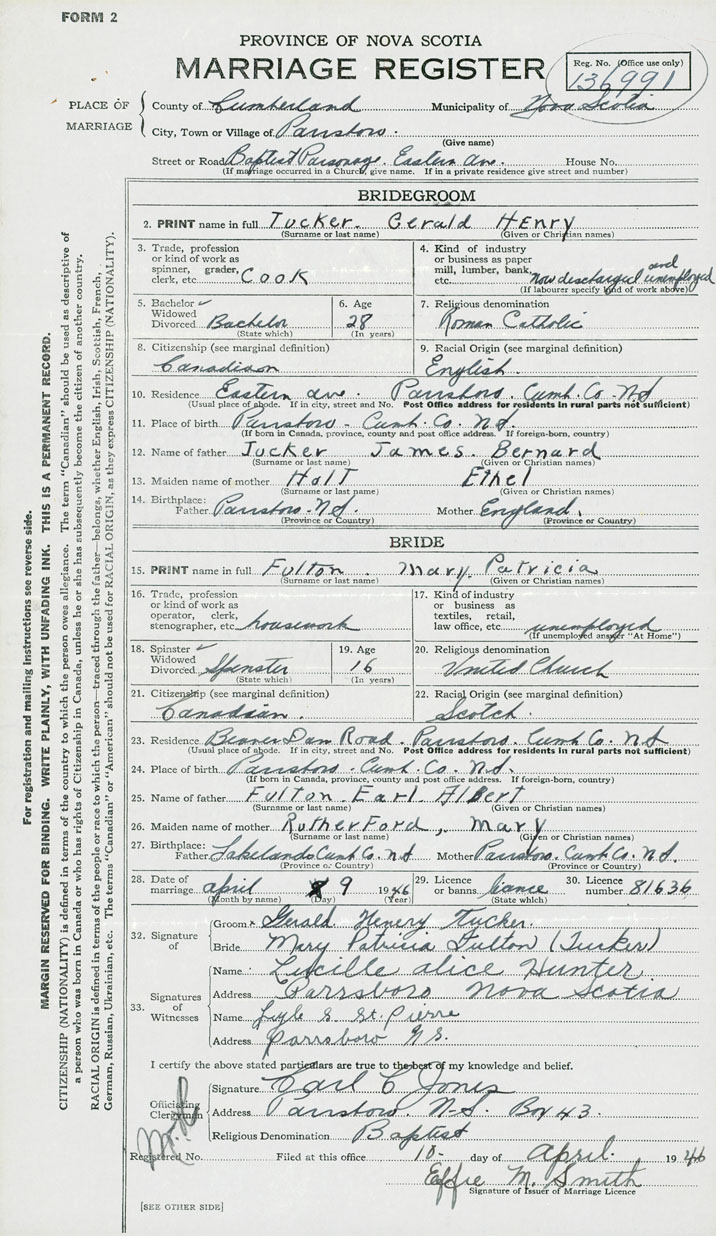 FORM 2
PROVINCE OF NOVA SCOTIA
MARRIAGE REGISTER
Reg. No. (Office use only)
136991
PLACE OF MARRIAGE
County of Cumberland Municipality of Nova Scotia
City, Town or Village of Parrsboro.
(Give name)
Street or Road Baptist Parsonage. Eastern Ave. House No.
(If marriage occurred in a Church, give name. If in a private residence give street and number)
BRIDEGROOM
2. PRINT name in full Tucker. Gerald Henry
(Surname or last name) (Given or Christian names)
3. Trade, profession or kind of work as spinner, grader, clerk, etc. Cook
4. Kind of industry or business as paper mill, lumber, bank, etc. Now discharged and unemployed
(If labourer specify kind of work above)
5. Bachelor ✓ Widowed Divorced Bachelor
(State which)
6. Age 28
(In years)
7. Religious denomination Roman Catholic
8. Citizenship (see marginal definition) Canadian
9. Racial Origin (see marginal definition) English.
10. Residence Eastern Ave. Parrsboro. Cumb. Co. N.S
(Usual place of abode. If in city, street and No. Post Office address for residents in rural parts not sufficient)
11. Place of birth Parrsboro - Cumb. Co. N.S.
(If born in Canada, province, county and post office address. If foreign-born, country)
12. Name of father Tucker James. Bernard
(Surname or last name) (Given or Christian names)
13. Maiden name of mother Holt Ethel
(Surname or last name) (Given or Christian names)
14. Birthplace: Father Parrsboro - N.S. Mother England.
(Province or Country) (Province or Country)
BRIDE
15. PRINT name in full Fulton. Mary. Patricia
(Surname or last name) (Given or Christian names)
16. Trade, profession or kind of work as operator, clerk, stenographer, etc. housework
17. Kind of industry or business as textiles, retail, law office, etc. unemployed
(If unemployed answer "At Home")
18. Spinster ✓ Widowed Divorced Spinster
(State which)
19. Age 16
(In years)
20. Religious denomination United Church
21. Citizenship (see marginal definition) Canadian.
22. Racial Origin (see marginal definition) Scotch.
23. Residence Beaver Dam Road. Parrsboro. Cumb Co. N.S
(Usual place of abode. If in city, street and No. Post Office address for residents in rural parts not sufficient)
24. Place of birth Parrsboro - Cumb. Co. N.S.
(If born in Canada, province, county and post office address. If foreign-born, country)
25. Name of father Fulton. Earl. Albert
(Surname or last name) (Given or Christian names)
26. Maiden name of mother Rutherford, Mary
(Surname or last name) (Given or Christian names)
27. Birthplace: Father Lakelands Cumb Co. N.S Mother Parrsboro. Cumb Co. N.S.
(Province or Country) (Province or Country)
28. Date of marriage April 9 1946
(Month by name) (Day) (Year)
29. Licence or banns liance
(State which)
30. Licence number 81636
32. Signature of
Groom Gerald Henery Tucker.
Bride Mary Patricia Fulton (Tucker)
33. Signatures of Witnesses
Name Lucille Alice Hunter
Address Parrsboro Nova Scotia
Name Lyle S. St. Pierre
Address Parrsboro N.S.
I certify the above stated particulars are true to the best of my knowledge and belief.
Officiating Clergyman
Signature Carl C Jones
Address Parrsboro. N-S. Box 43.
Religious Denomination Baptist
Registered No. Filed at this office 10- day of April. 1946
Effie M. Smith
Signature of Issuer of Marriage Licence
[SEE OTHER SIDE]
For registration and mailing instructions see reverse side.
MARGIN RESERVED FOR BINDING. WRITE PLAINLY, WITH UNFADING INK. THIS IS A PERMANENT RECORD.
CITIZENSHIP (NATIONALITY) is defined in terms of the country to which the person owes allegiance. The term "Canadian" should be used as descriptive of
a person who was born in Canada or who has rights of Citizenship in Canada, unless he or she has subsequently become the citizen of another country.
RACIAL ORIGIN is defined in terms of the people or race to which the person—traced through the father—belongs, whether English, Irish, Scottish, French,
German, Russian, Ukrainian, etc. The terms "Canadian" or "American" should not be used for RACIAL ORIGIN, as they express CITIZENSHIP (NATIONALITY).